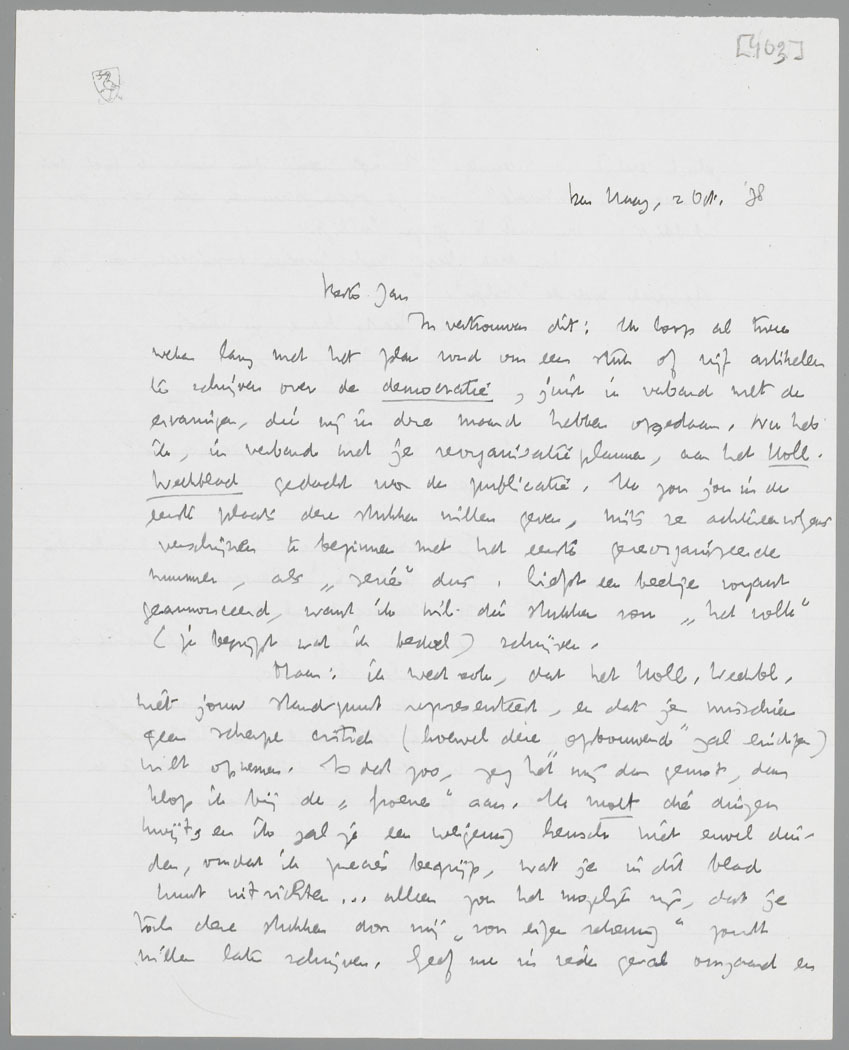 [403]
Den Haag, 2 Oct. '38
Beste Jan
In vertrouwen dit: Ik loop al twee
weken lang met het plan rond om een stuk of vijf artikelen
te schrijven over de democratie, juist in verband met de
ervaringen, die wij in deze maand hebben opgedaan. Nu heb
ik, in verband met je reorganisatieplannen, aan het Holl.
Weekblad gedacht voor de publicatie. Ik zou jou in de
eerste plaats deze stukken willen geven, mits ze achtereenvolgens
verschijnen te beginnen met het eerste gereorganiseerde
nummer, als „serie" dus. Liefst een beetje royaal
geannonceerd, want ik wil die stukken voor „het volk"
(je begrijpt wat ik bedoel) schrijven.
Maar: ik weet ook, dat het Holl. Weekbl.
niet jouw standpunt representeert, en dat je misschien
geen scherpe critiek (hoewel deze „opbouwend" zal eindigen)
wilt opnemen. Is dat zoo, zeg het mij dan gerust, dan
klop ik bij de „groene" aan. Ik moet die dingen
kwijt, en ik zal je een weigering heusch niet euvel dui-
den, omdat ik precies begrijp, wat je in dit blad
kunt uitrichten... alleen zou het mogelijk zijn, dat je
toch deze stukken door mij „voor eigen rekening" zoudt
willen laten schrijven. Geef me in ieder geval omgaand en